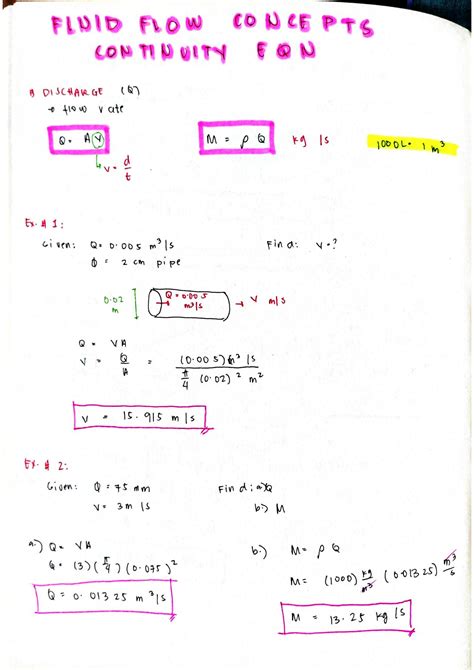 FLUID FLOW CONCEPTS
CONTINUITY EQN
DISCHARGE (Q)
→ flow rate
Q = AV
M = ρ Q kg/s
1000L = 1 m³
v = d/t
Ex. # 1:
Given: Q = 0.005 m³/s Find: v = ?
ϕ = 2 cm pipe
0.02 m
Q = 0.005 m³/s
→ V m/s
Q = VA
V = Q/A = (0.005) m³/s / π/4 (0.02)² m²
V = 15.915 m/s
Ex. # 2:
Given: ϕ = 75 mm Find: a) Q
V = 3 m/s b) M
a.) Q = VA
Q = (3)(π/4)(0.075)²
Q = 0.01325 m³/s
b.) M = ρ Q
M = (1000) kg/m³ (0.01325) m³/s
M = 13.25 kg/s